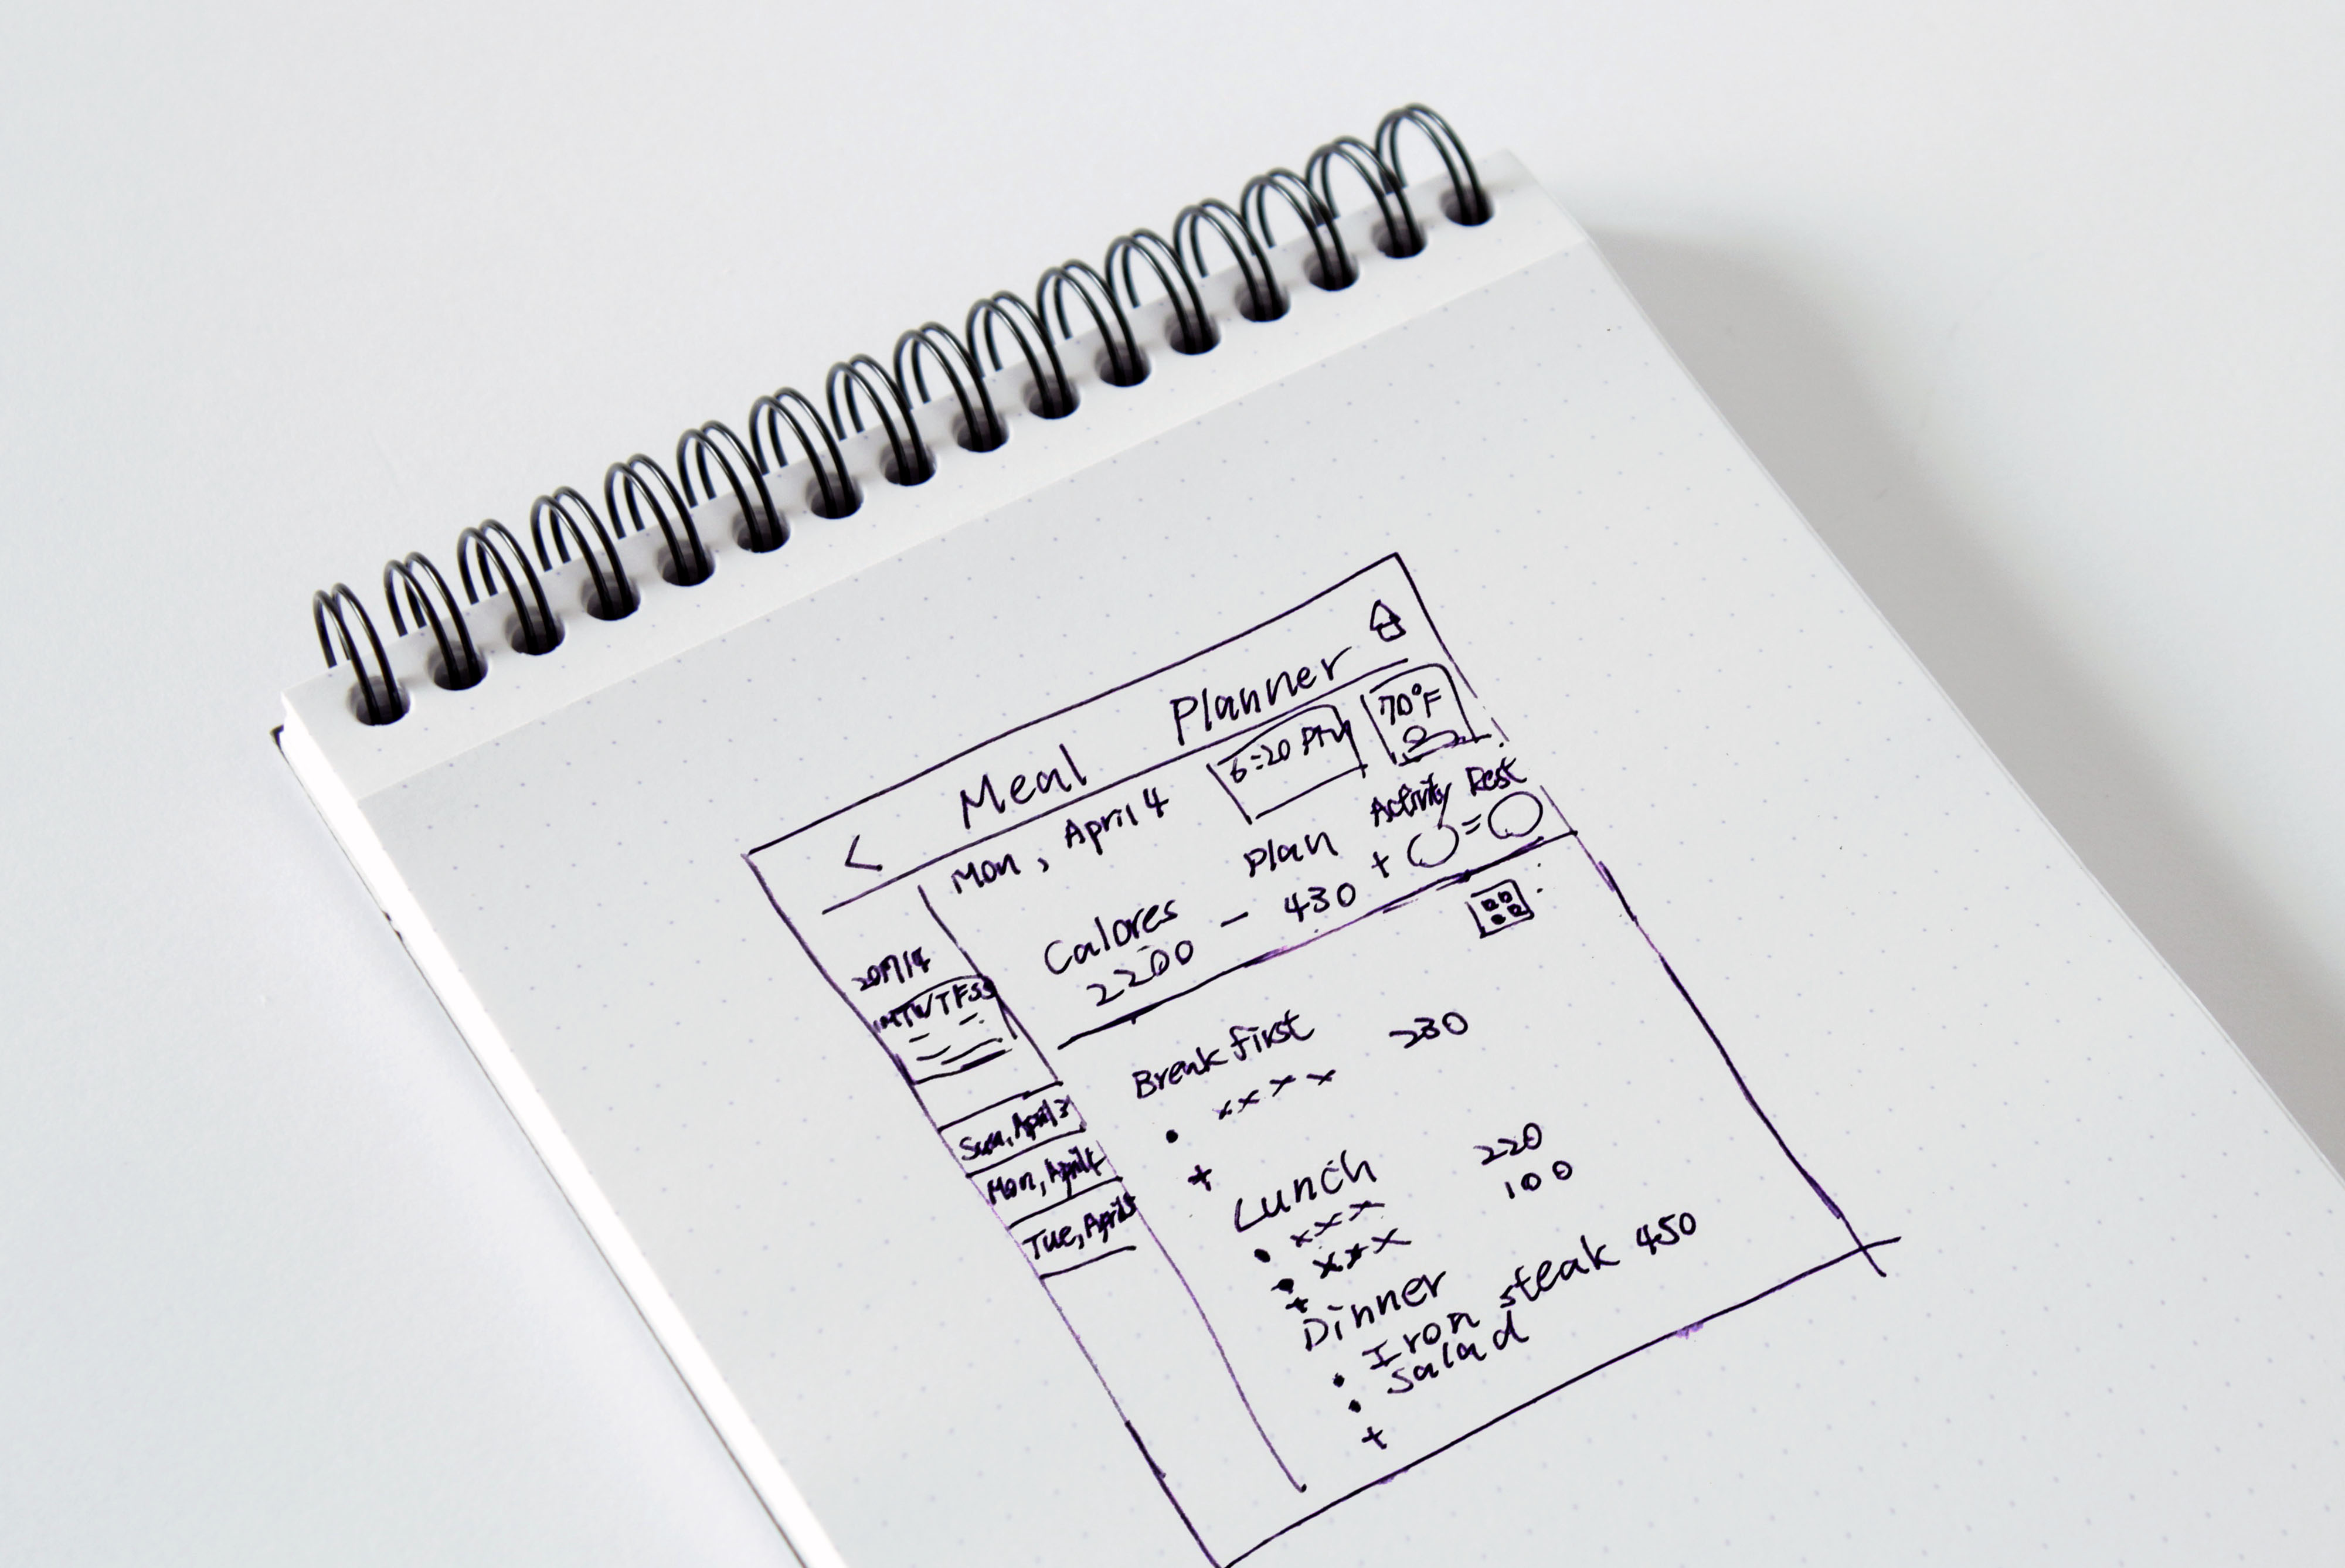 < Meal Planner
Mon, April 4 6:20 PM 70°F
Calores Plan Activity Rest
2200 - 430 + =
MTWTFSS
Sun, April 3
Mon, April 4
Tue, April 5
Breakfirst 230
xxxx
+
Lunch
• xxx 220
• xxx 100
+
Dinner
• Iron steak 450
• Salad
+